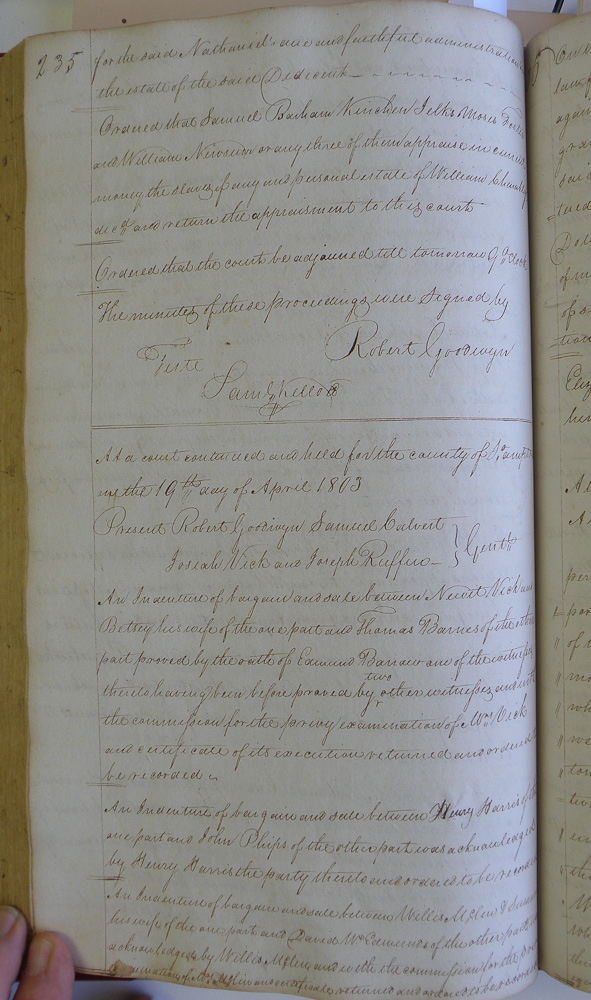 235
for the said Nathaniel's due and faithful administration
the estate of the said Decedent
Ordered that Samuel Barham Kinchen Jelks Moses
and William or any three of them appraise in current
money the slaves if any and personal estate of William
decd and return the appraisment to this court
Ordered that the court be adjourned till tomorrow 9 oClock
The minutes of these proceedings were Signed by
Robert Goodwyn
Teste
Saml Kello
At a court continued and held for the county of
the 19th day of April 1803
Present Robert Goodwyn Samuel Calvert
Josiah Vick and Joseph Ruffin Gentn
An Indenture of bargain and sale between Newit Vick and
Betsey his wife of the one part and Thomas Barnes of the other
part proved by the oath of Edmund Barrow one of the witnesses
thereto having been before proved by two other witnesses and with
the commission for the privy examination of Mrs Vick
and certificate of its execution returned and ordered to
be recorded
An Indenture of bargain and sale between Henry Harris of the
one part and John Phips of the other part was acknowledged
by Henry Harris the party thereto and ordered to be recorded
An Indenture of bargain and sale between Willis &
his wife of the one part and David of the other part
acknowledged by Willis and with the commission for the
examination of Mrs and certificate returned and ordered to be recorded